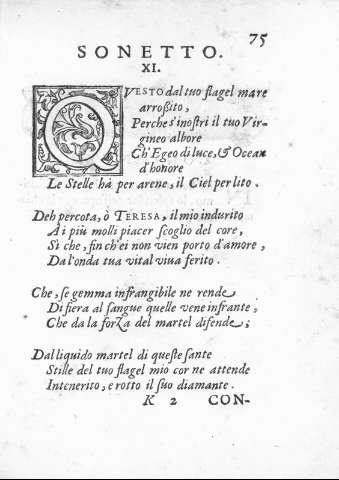 75
SONETTO.
XI.
QVESTO dal tuo flagel mare
arroſſito,
Perche s'inoſtri il tuo Vir-
gineo albore
Ch'Egeo di luce, & Ocean
d'honore
Le Stelle hà per arene, il Ciel per lito.
Deh percota, ò TERESA, il mio indurito
A i più molli piacer ſcoglio del core,
Sì che, fin ch'ei non vien porto d'amore,
Da l'onda tua vital viua ferito.
Che, ſe gemma infrangibile ne rende
Di fiera al ſangue quelle vene infrante,
Che da la forza del martel difende;
Dal liquido martel di queſte ſante
Stille del tuo flagel mio cor ne attende
Intenerito, e rotto il ſuo diamante.
K 2 CON-